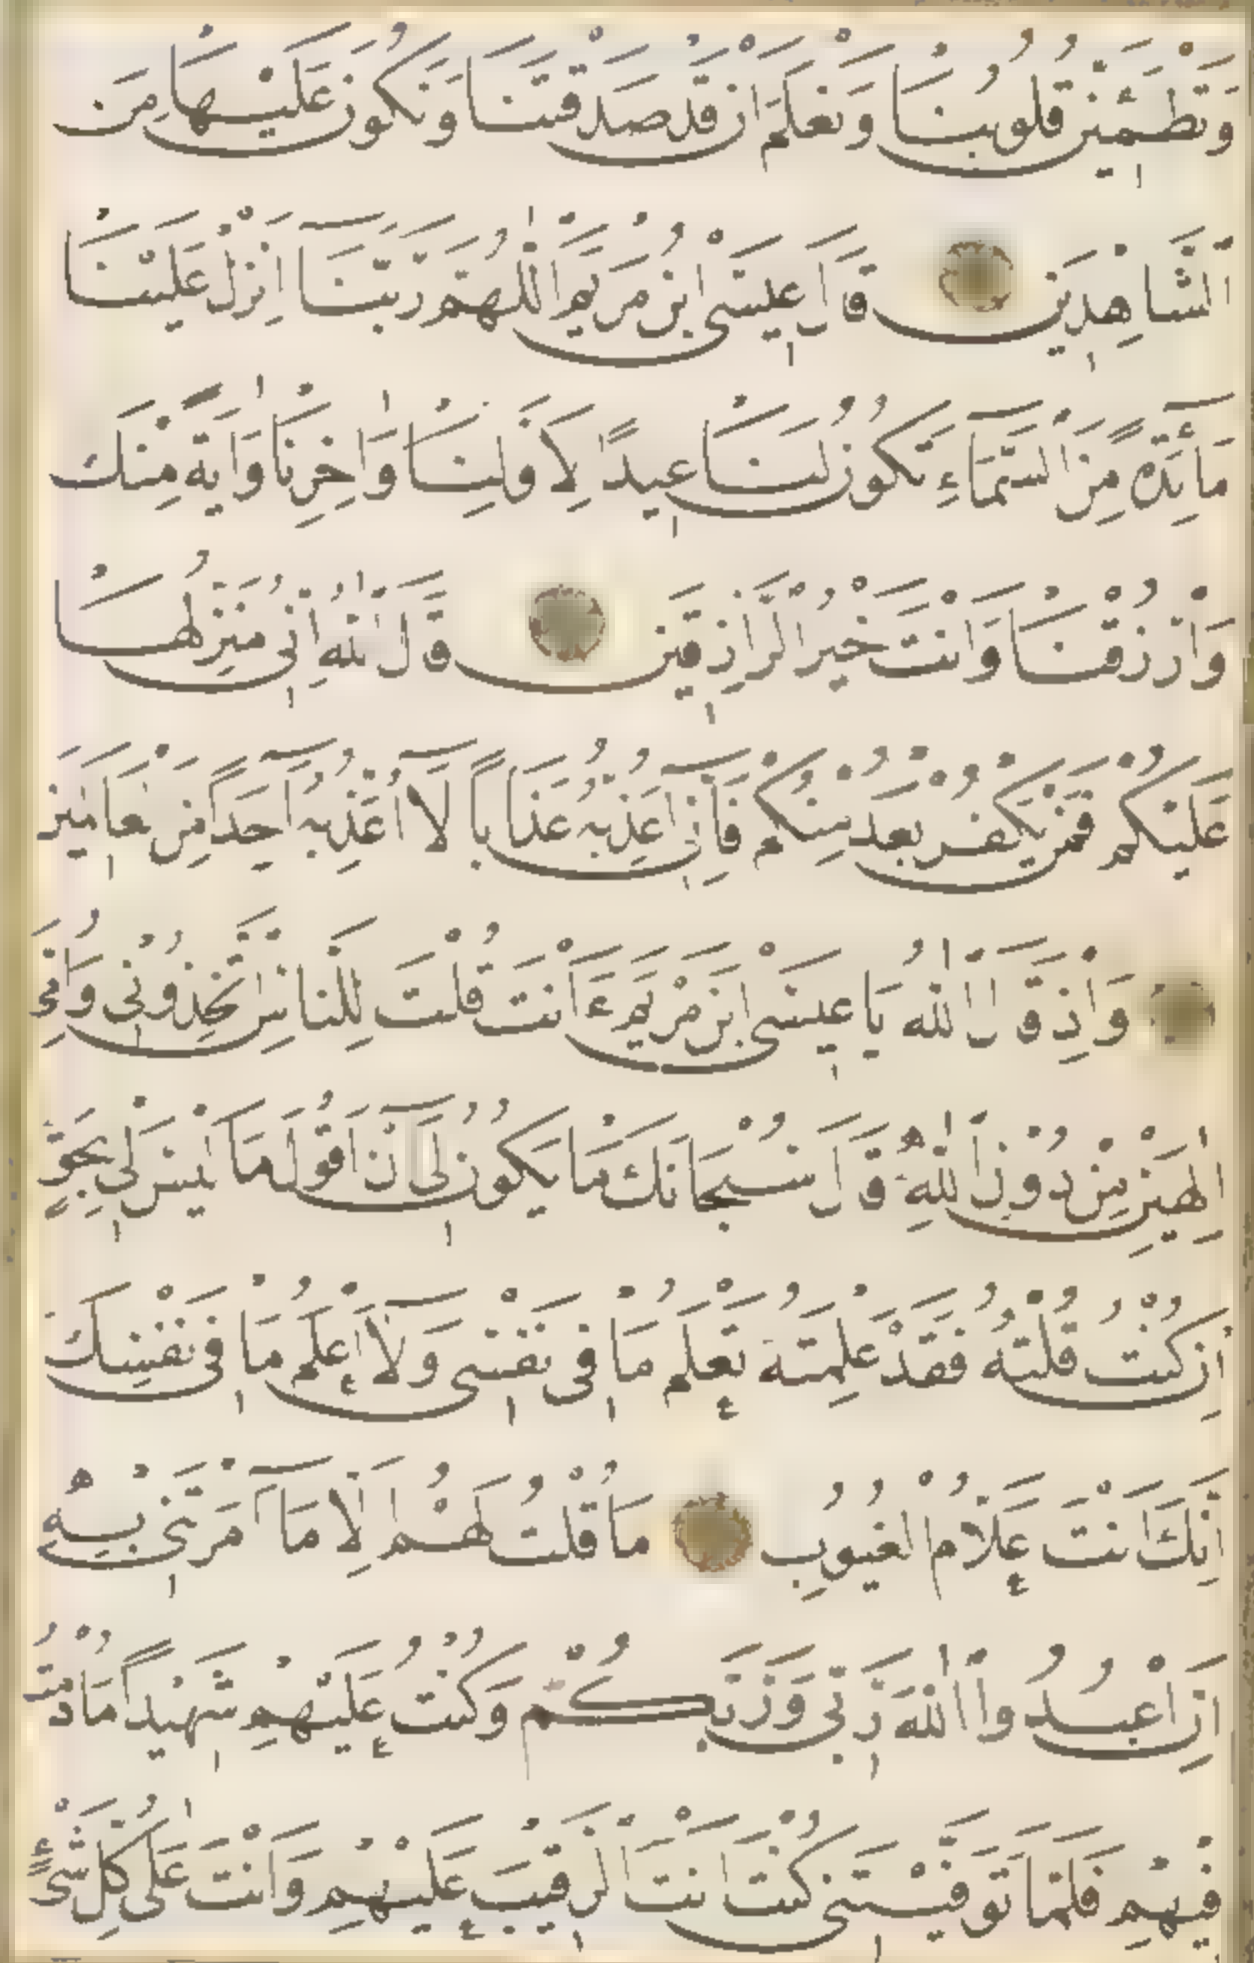 وَتَطْمَئِنَّ قُلُوبُنَا وَنَعْلَمَ اَنْ قَدْ صَدَقْتَنَا وَنَكُونَ عَلَيْهَا مِنَ
الشَّاهِدِينَ قَالَ عِيسَى ابْنُ مَرْيَمَ اللّٰهُمَّ رَبَّنَآ اَنْزِلْ عَلَيْنَا
مَآئِدَةً مِنَ السَّمَآءِ تَكُونُ لَنَا عِيدًا لِاَوَّلِنَا وَاٰخِرِنَا وَاٰيَةً مِنْكَ
وَارْزُقْنَا وَاَنْتَ خَيْرُ الرَّازِقِينَ قَالَ اللّٰهُ اِنِّي مُنَزِّلُهَا
عَلَيْكُمْ فَمَنْ يَكْفُرْ بَعْدُ مِنْكُمْ فَاِنِّيٓ اُعَذِّبُهُ عَذَابًا لَآ اُعَذِّبُهُٓ اَحَدًا مِنَ الْعَالَمِينَ
وَاِذْ قَالَ اللّٰهُ يَا عِيسَى ابْنَ مَرْيَمَ ءَاَنْتَ قُلْتَ لِلنَّاسِ اتَّخِذُونِي وَاُمِّيَ
اِلٰهَيْنِ مِنْ دُونِ اللّٰهِ قَالَ سُبْحَانَكَ مَا يَكُونُ لِيٓ اَنْ اَقُولَ مَا لَيْسَ لِي بِحَقٍّ
اِنْ كُنْتُ قُلْتُهُ فَقَدْ عَلِمْتَهُ تَعْلَمُ مَا فِي نَفْسِي وَلَآ اَعْلَمُ مَا فِي نَفْسِكَ
اِنَّكَ اَنْتَ عَلَّامُ الْغُيُوبِ مَا قُلْتُ لَهُمْ اِلَّا مَآ اَمَرْتَنِي بِهِ
اَنِ اعْبُدُوا اللّٰهَ رَبِّي وَرَبَّكُمْ وَكُنْتُ عَلَيْهِمْ شَهِيدًا مَا دُمْتُ
فِيهِمْ فَلَمَّا تَوَفَّيْتَنِي كُنْتَ اَنْتَ الرَّقِيبَ عَلَيْهِمْ وَاَنْتَ عَلٰى كُلِّ شَيْءٍ